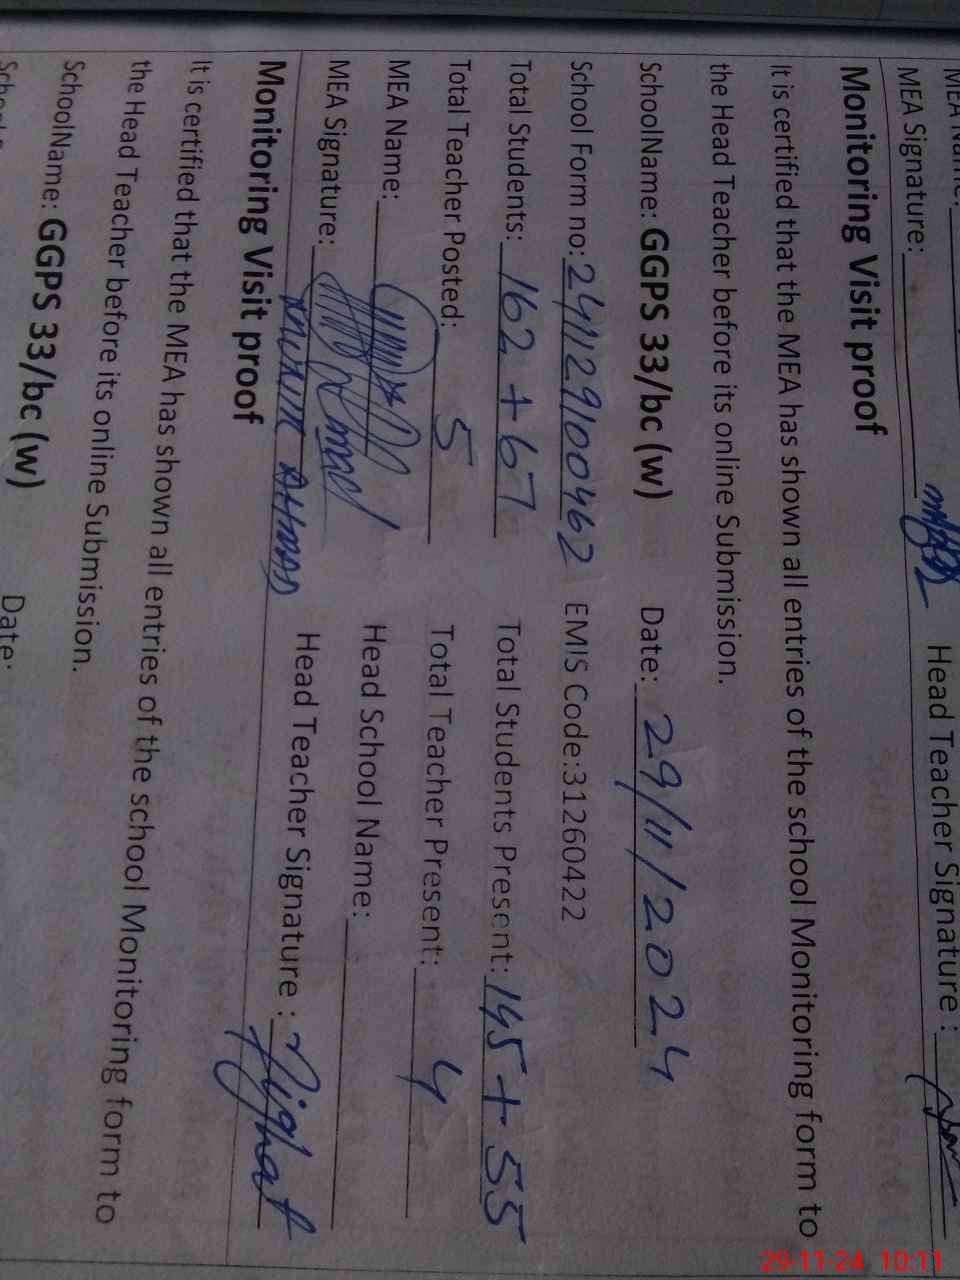 MEA Signature: Head Teacher Signature :
Monitoring Visit proof
It is certified that the MEA has shown all entries of the school Monitoring form to
the Head Teacher before its online Submission.
SchoolName: GGPS 33/bc (w) Date: 29/11/2024
School Form no: 241129100462 EMIS Code:31260422
Total Students: 162 + 67 Total Students Present: 145 + 55
Total Teacher Posted: 5 Total Teacher Present: 4
MEA Name: Head School Name:
MEA Signature: Head Teacher Signature : Nighat
Monitoring Visit proof
It is certified that the MEA has shown all entries of the school Monitoring form to
the Head Teacher before its online Submission.
SchoolName: GGPS 33/bc (w) Date:
29-11-24 10:11